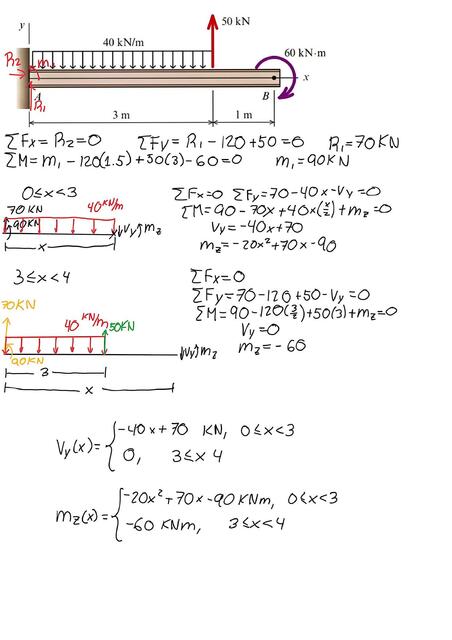 50 kN
y
40 kN/m
60 kN·m
R2
m1
x
R1
A
B
3 m
1 m
∑Fx = R2 = 0 ∑Fy = R1 - 120 + 50 = 0 R1 = 70 KN
∑M = m1 - 120(1.5) + 50(3) - 60 = 0 m1 = 90KN
0 ≤ x < 3
70 KN
40 KN/m
90KN
Vy
mz
x
∑Fx = 0 ∑Fy = 70 - 40x - Vy = 0
∑M = 90 - 70x + 40x(x/2) + mz = 0
Vy = -40x + 70
mz = -20x² + 70x - 90
3 ≤ x < 4
70 KN
40 KN/m
50KN
90KN
Vy
mz
3
x
∑Fx = 0
∑Fy = 70 - 120 + 50 - Vy = 0
∑M = 90 - 120(3/2) + 50(3) + mz = 0
Vy = 0
mz = -60
Vy(x) = { -40x + 70 KN, 0 ≤ x < 3
0, 3 ≤ x 4
mz(x) = { -20x² + 70x - 90 KNm, 0 ≤ x < 3
-60 KNm, 3 ≤ x < 4